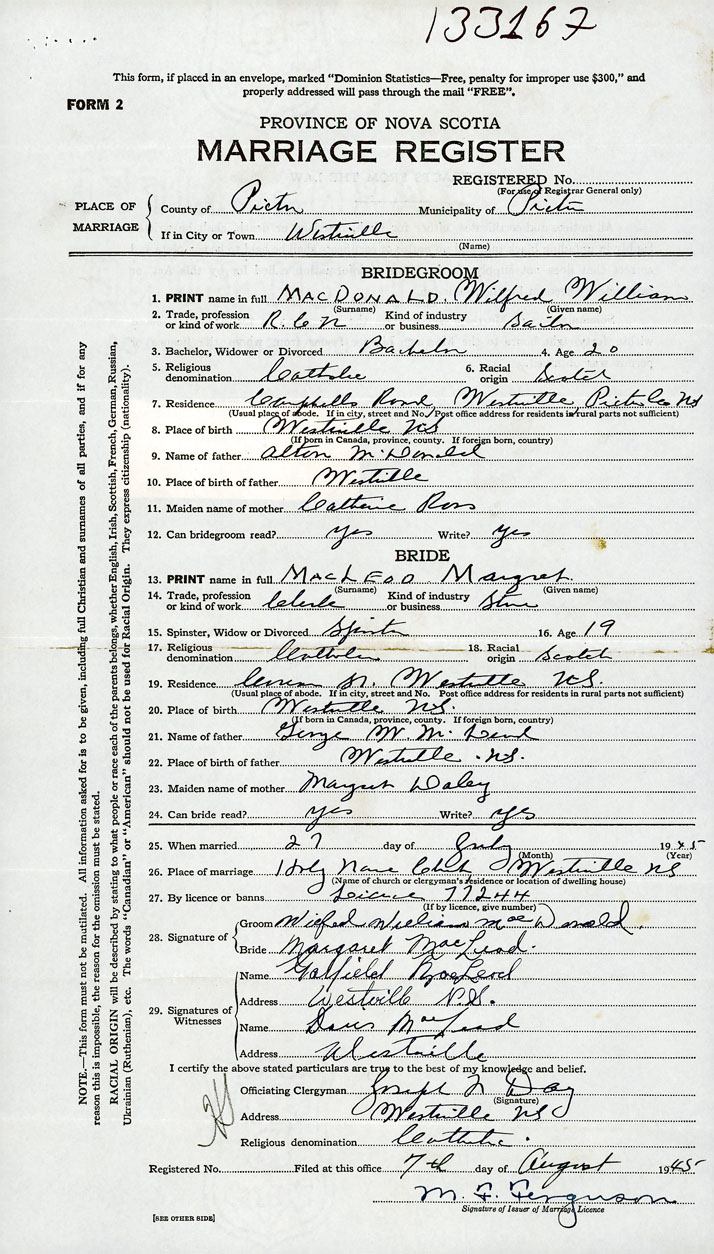 133167
This form, if placed in an envelope, marked "Dominion Statistics—Free, penalty for improper use $300," and
properly addressed will pass through the mail "FREE".
FORM 2
PROVINCE OF NOVA SCOTIA
MARRIAGE REGISTER
REGISTERED No.
(For use of Registrar General only)
PLACE OF MARRIAGE
County of Pictou Municipality of Pictou
If in City or Town Westville
(Name)
BRIDEGROOM
1. PRINT name in full MACDONALD, Wilfred William
(Surname) (Given name)
2. Trade, profession or kind of work R.C.N Kind of industry or business Sailor
3. Bachelor, Widower or Divorced Bachelor 4. Age 20
5. Religious denomination Catholic 6. Racial origin Scotch
7. Residence Campbells Road, Westville, Pictou Co NS
(Usual place of abode. If in city, street and No. Post office address for residents in rural parts not sufficient)
8. Place of birth Westville NS
(If born in Canada, province, county. If foreign born, country)
9. Name of father Alton McDonald
10. Place of birth of father Westville
11. Maiden name of mother Catherine Ross
12. Can bridegroom read? yes Write? yes
BRIDE
13. PRINT name in full MACLEOD Margret
(Surname) (Given name)
14. Trade, profession or kind of work Clerk Kind of industry or business Store
15. Spinster, Widow or Divorced Spinster 16. Age 19
17. Religious denomination Catholic 18. Racial origin Scotch
19. Residence St. Westville NS.
(Usual place of abode. If in city, street and No. Post office address for residents in rural parts not sufficient)
20. Place of birth Westville NS.
(If born in Canada, province, county. If foreign born, country)
21. Name of father George W. McLeod
22. Place of birth of father Westville NS.
23. Maiden name of mother Margret Daley
24. Can bride read? yes Write? yes
25. When married 27 day of July 1945
(Month) (Year)
26. Place of marriage Holy Name Church Westville NS
(Name of church or clergyman's residence or location of dwelling house)
27. By licence or banns Licence 77244
(If by licence, give number)
28. Signature of
Groom Wilfred William MacDonald.
Bride Margaret MacLeod.
29. Signatures of Witnesses
Name MacLeod
Address Westville N.S.
Name Doris MacLeod
Address Westville
I certify the above stated particulars are true to the best of my knowledge and belief.
Officiating Clergyman Joseph N Day
(Signature)
Address Westville NS
Religious denomination Catholic.
Registered No. Filed at this office 7th day of August 1945
M. F. Ferguson
Signature of Issuer of Marriage Licence
[SEE OTHER SIDE]
NOTE.—This form must not be mutilated. All information asked for is to be given, including full Christian and surnames of all parties, and if for any
reason this is impossible, the reason for the omission must be stated.
RACIAL ORIGIN will be described by stating to what people or race each of the parents belongs, whether English, Irish, Scottish, French, German, Russian,
Ukrainian (Ruthenian), etc. The words "Canadian" or "American" should not be used for Racial Origin. They express citizenship (nationality).